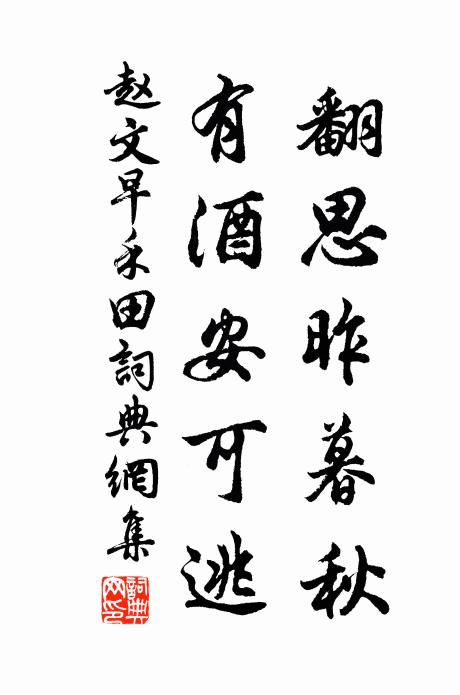 翻思昨暮秋
有酒安可逃
赵文早禾田詞典網集
詞典
网印